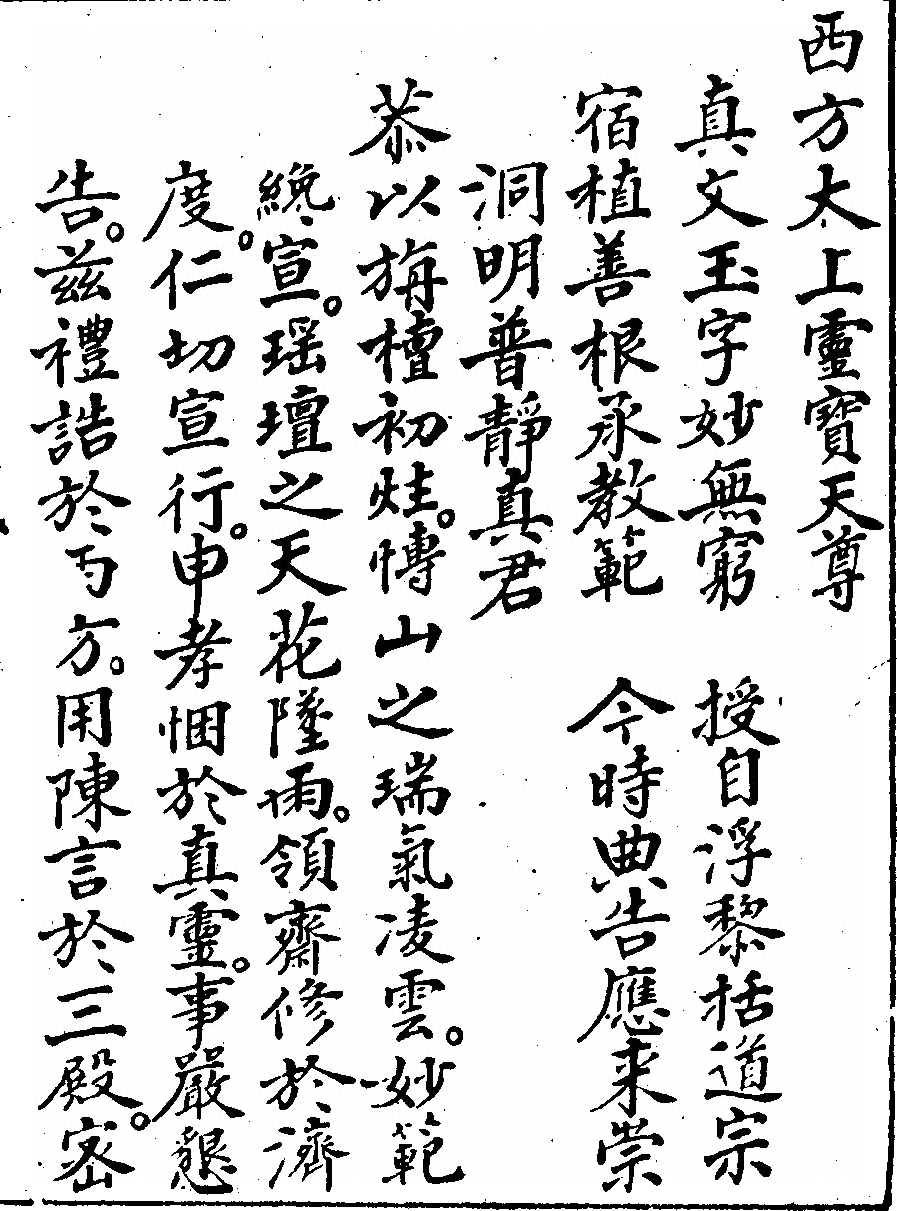 西方太上靈寶天尊
真文玉字妙無窮　授自浮黎括道宗
宿植善根承教範　今時典告應来崇
洞明普静真君
恭以旃檀初炷。慱山之瑞氣凌雲。妙範
纔宣。瑶壇之天花墜雨。領齋修於濟
度。仁切宣行。申孝悃於真靈。事嚴懇
告。兹禮誥於丂方。用陳言於三殿。宻